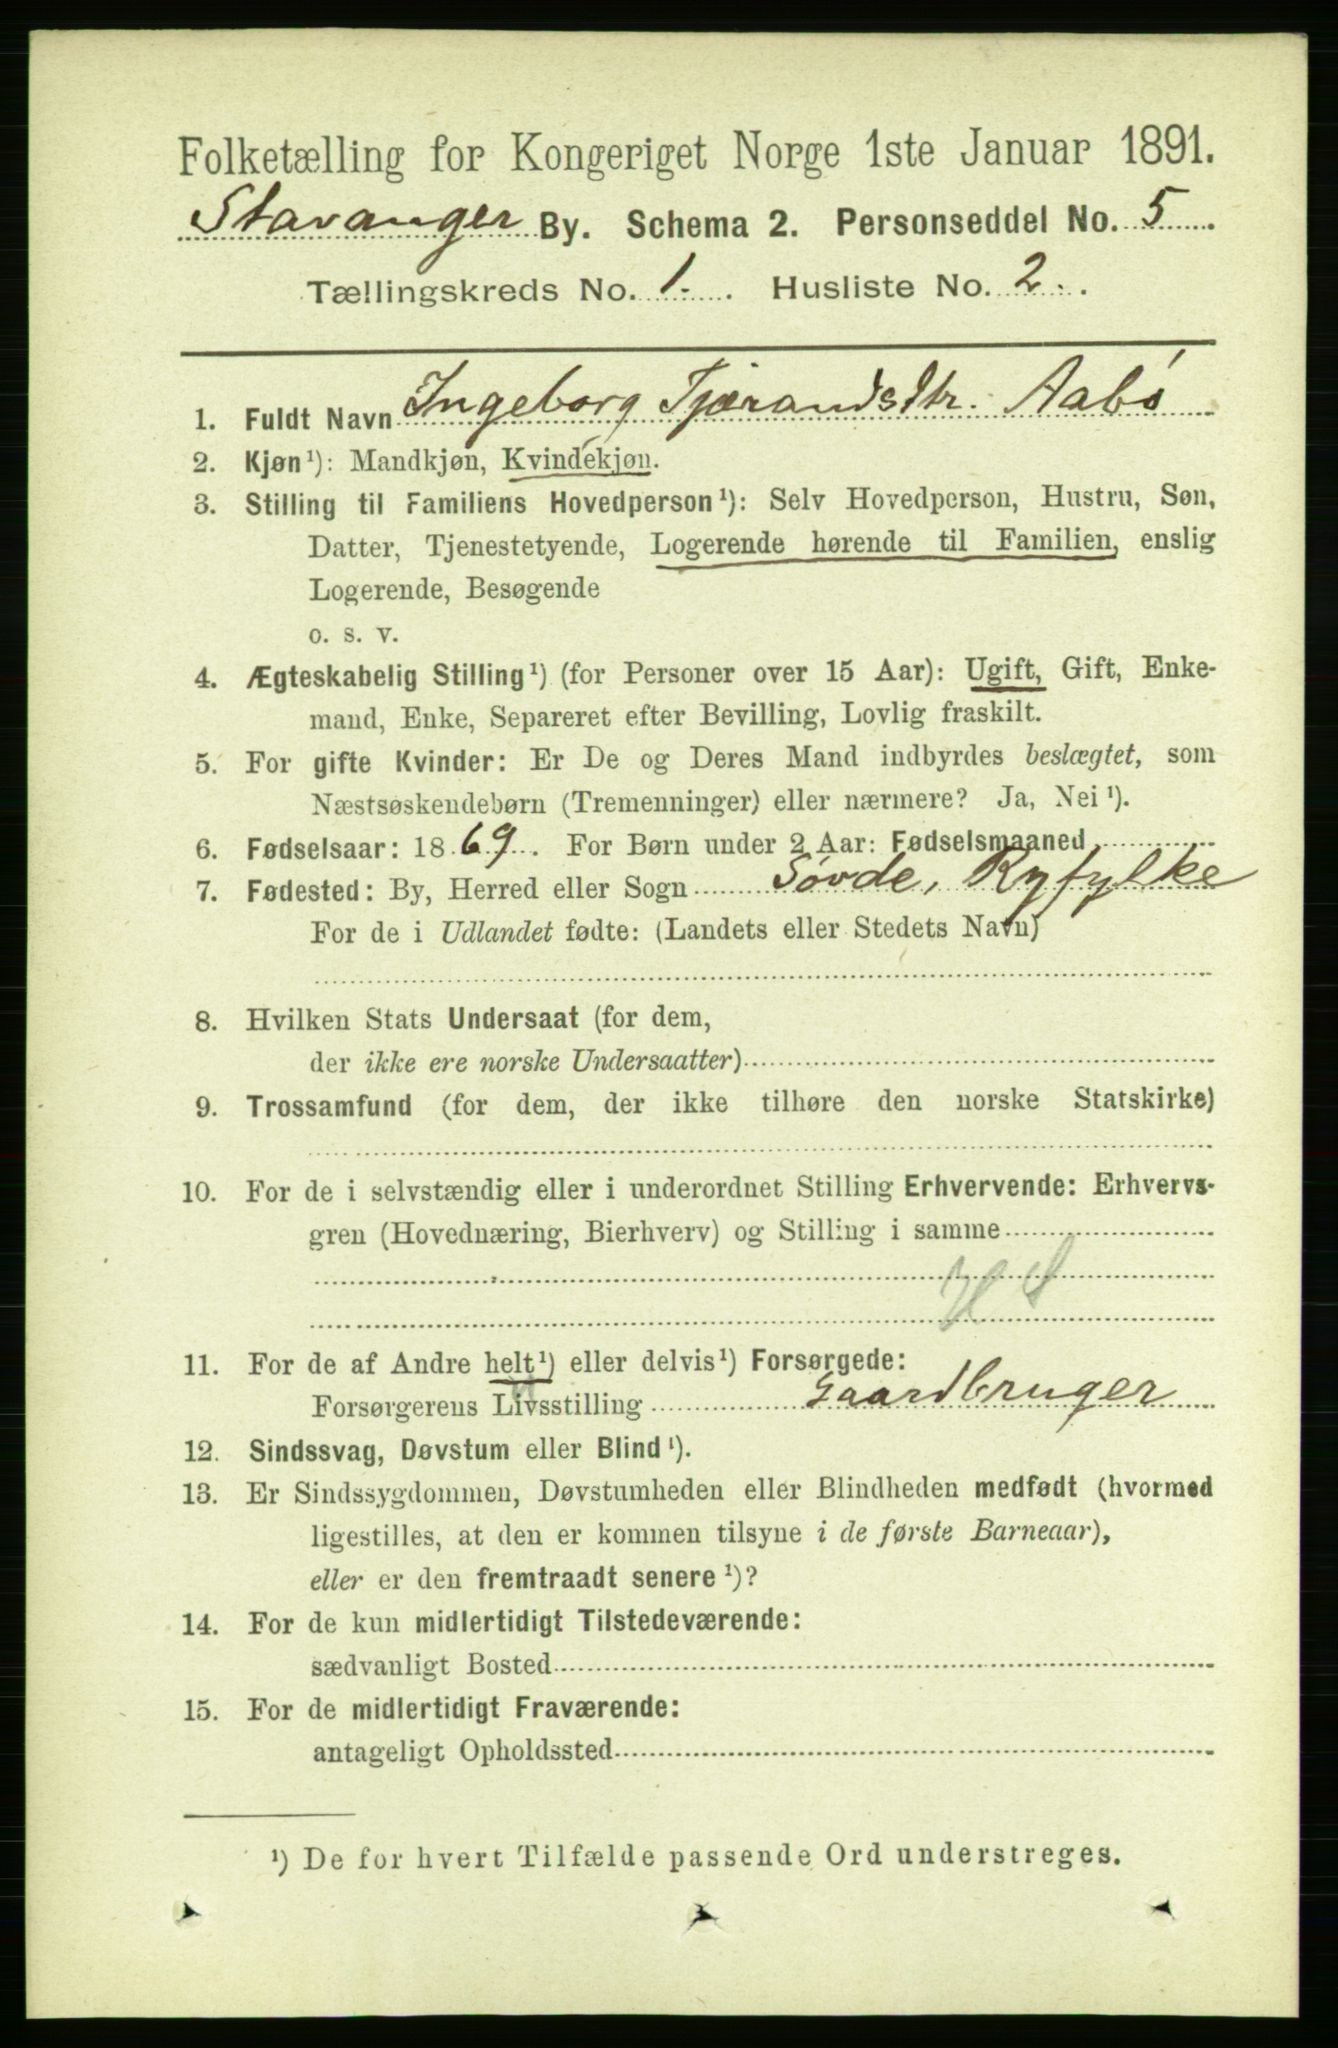 Folketælling for Kongeriget Norge 1ste Januar 1891.
Stavanger By. Schema 2. Personseddel No. 5
Tællingskreds No. 1. Husliste No. 2.
1. Fuldt Navn Ingeborg Tjærandsdtr. Aabó
2. Kjøn¹): Mandkjøn, Kvindekjøn.
3. Stilling til Familiens Hovedperson¹): Selv Hovedperson, Hustru, Søn,
Datter, Tjenestetyende, Logerende hørende til Familien, enslig
Logerende, Besøgende
o. s. v.
4. Ægteskabelig Stilling¹) (for Personer over 15 Aar): Ugift, Gift, Enke-
mand, Enke, Separeret efter Bevilling, Lovlig fraskilt.
5. For gifte Kvinder: Er De og Deres Mand indbyrdes beslægtet, som
Næstsøskendebørn (Tremenninger) eller nærmere? Ja, Nei¹).
6. Fødselsaar: 1869. For Børn under 2 Aar: Fødselsmaaned
7. Fødested: By, Herred eller Sogn Sóvde, Ryfylke
For de i Udlandet fødte: (Landets eller Stedets Navn)
8. Hvilken Stats Undersaat (for dem,
der ikke ere norske Undersaatter)
9. Trossamfund (for dem, der ikke tilhøre den norske Statskirke)
10. For de i selvstændig eller i underordnet Stilling Erhvervende: Erhvervs-
gren (Hovednæring, Bierhverv) og Stilling i samme
11. For de af Andre helt¹) eller delvis¹) Forsørgede:
Forsørgerens Livsstilling Gaardbruger
12. Sindssvag, Døvstum eller Blind¹).
13. Er Sindssygdommen, Døvstumheden eller Blindheden medfødt (hvormed
ligestilles, at den er kommen tilsyne i de første Barneaar),
eller er den fremtraadt senere¹)?
14. For de kun midlertidigt Tilstedeværende:
sædvanligt Bosted
15. For de midlertidigt Fraværende:
antageligt Opholdssted
¹) De for hvert Tilfælde passende Ord understreges.